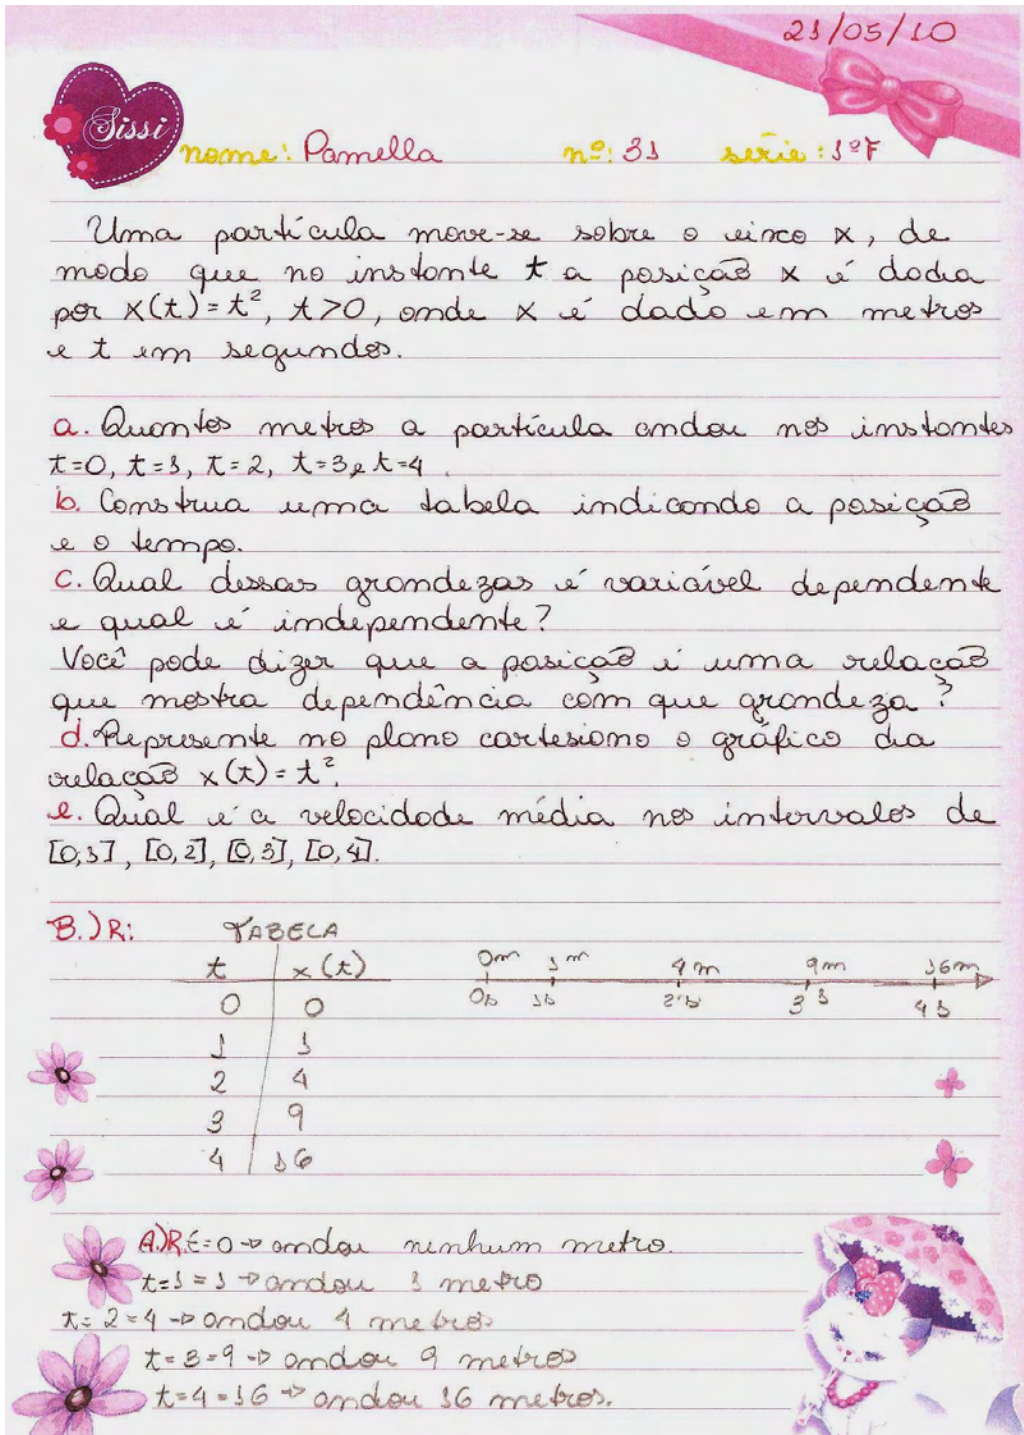 21/05/10
Sissi
nome: Pamella nº: 31 série: 1ºF
Uma partícula move-se sobre o eixo x, de
modo que no instante t a posição x é dada
por x(t)=t², t>0, onde x é dado em metros
e t em segundos.
a. Quantos metros a partícula andou nos instantes
t=0, t=1, t=2, t=3 e t=4.
b. Construa uma tabela indicando a posição
e o tempo.
c. Qual dessas grandezas é variável dependente
e qual é independente?
Você pode dizer que a posição é uma relação
que mostra dependência com que grandeza?
d. Represente no plano cartesiano o gráfico da
relação x(t)=t².
e. Qual é a velocidade média nos intervalos de
[0,1], [0,2], [0,3], [0,4].
B.) R: TABELA
t x(t) 0m 1m 4m 9m 16m
0 0 0s 1s 2s 3s 4s
1 1
2 4
3 9
4 16
A.) R: t=0 → andou nenhum metro.
t=1=1 → andou 1 metro
t=2=4 → andou 4 metros
t=3=9 → andou 9 metros
t=4=16 → andou 16 metros.